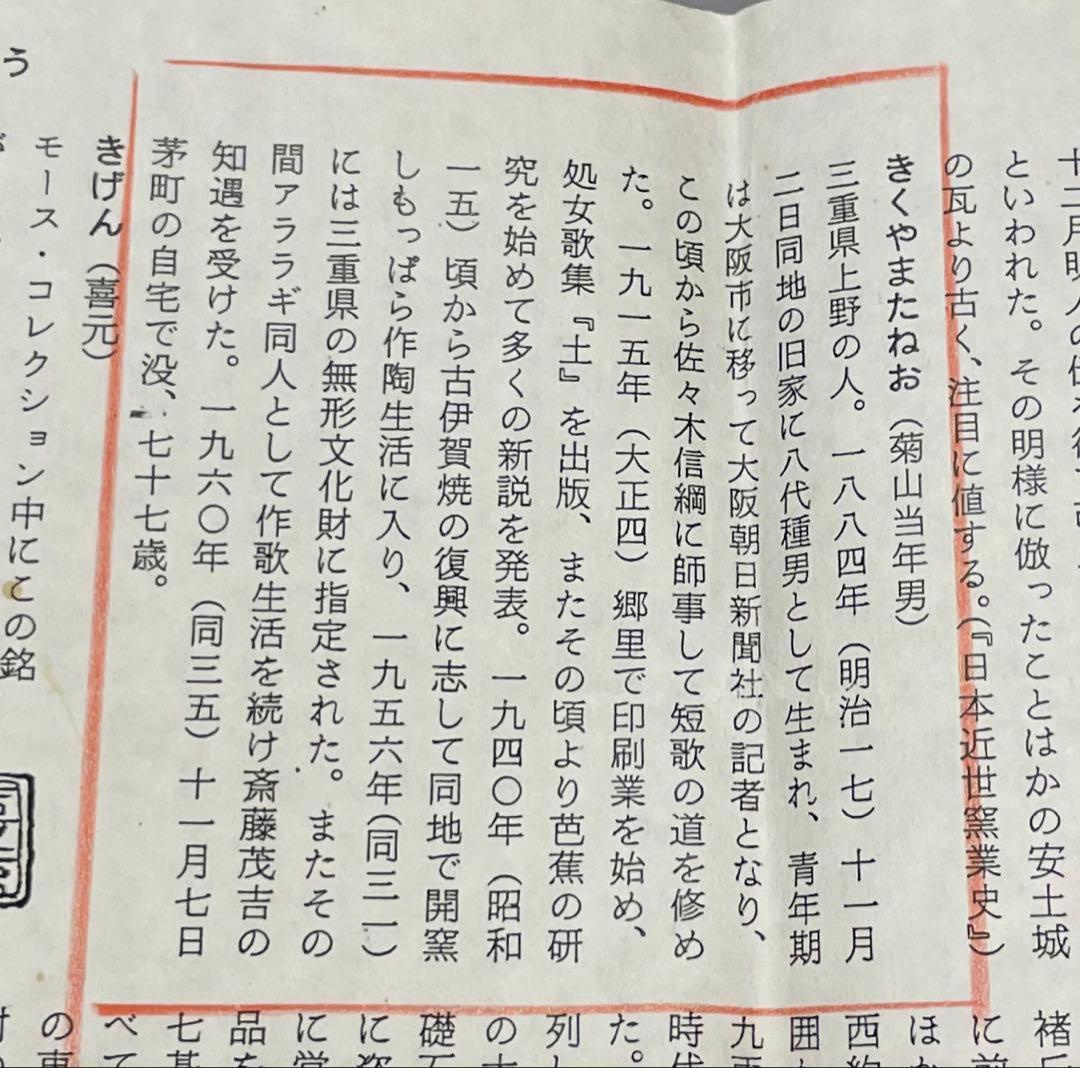 といわれた。その明様に倣ったことはかの安土城
の瓦より古く、注目に値する。(『日本近世窯業史』)
きくやまたねお(菊山当年男)
三重県上野の人。一八八四年(明治一七)十一月
二日同地の旧家に八代種男として生まれ、青年期
は大阪市に移って大阪朝日新聞社の記者となり、
この頃から佐々木信綱に師事して短歌の道を修め
た。一九一五年(大正四)郷里で印刷業を始め、
処女歌集『土』を出版、またその頃より芭蕉の研
究を始めて多くの新説を発表。一九四〇年(昭和
一五)頃から古伊賀焼の復興に志して同地で開窯
しもっぱら作陶生活に入り、一九五六年(同三一)
には三重県の無形文化財に指定された。またその
間アララギ同人として作歌生活を続け斎藤茂吉の
知遇を受けた。一九六〇年(同三五)十一月七日
茅町の自宅で没、七十七歳。
きげん(喜元)
モース・コレクション中にこの銘
う
に前
ほか
西約
囲
九
時代
た。
列し
の
礎石
に
に
品を
七基
べて
の